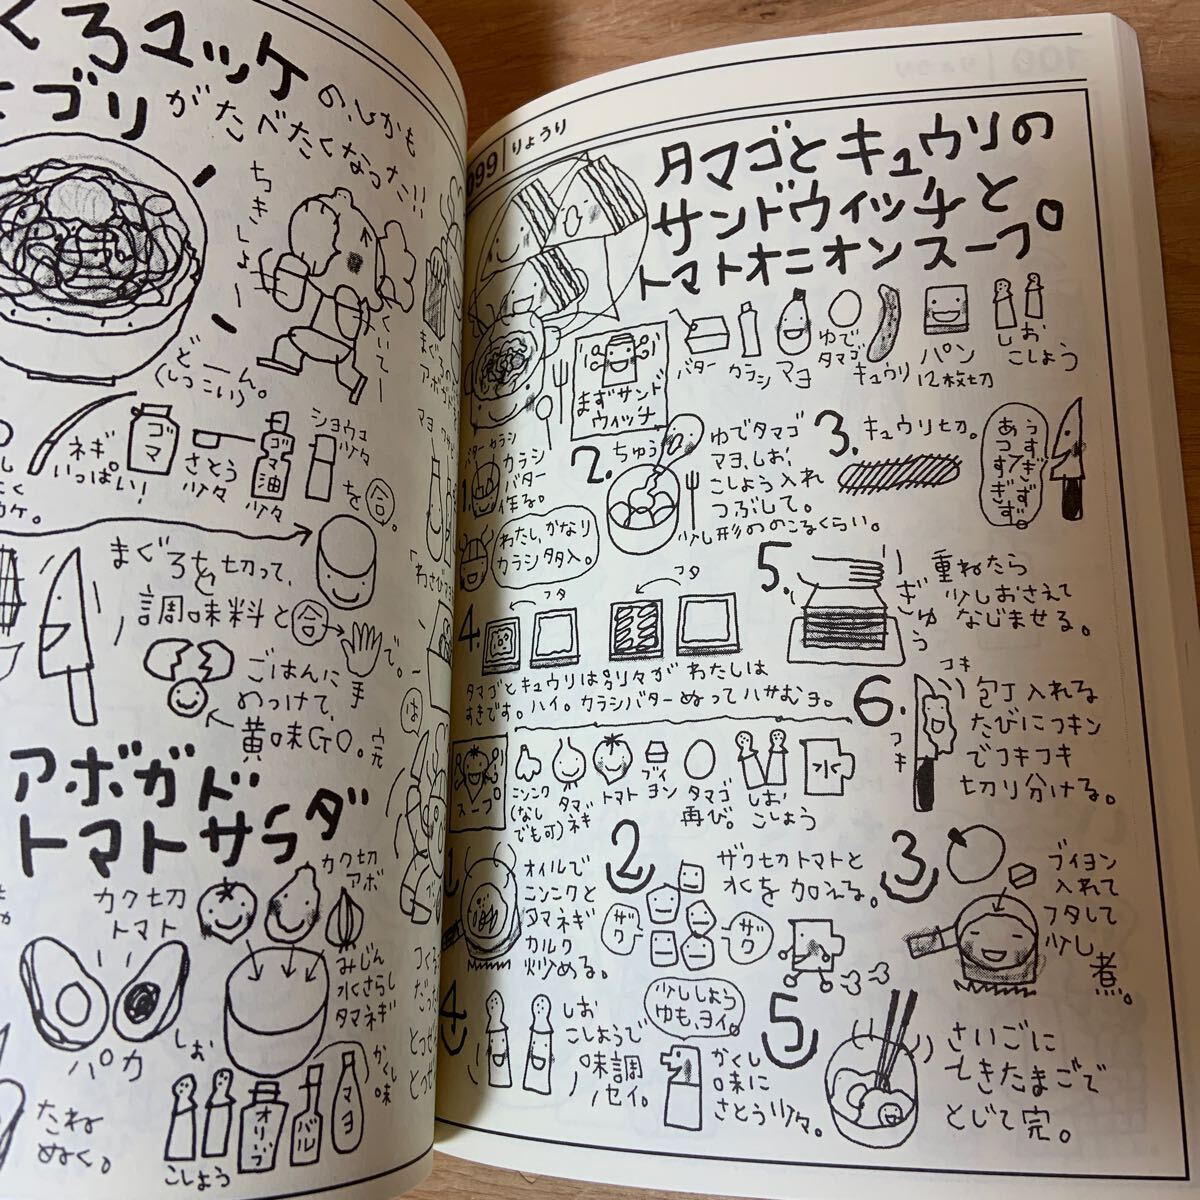 くろマッケの、しかも
ゴリがたべたくなった!!
ちきしょー
どーん。
(しつこい)。
ネギ
いっぱい!
ゴマ
さとう
少々
ゴマ油
少々
ショウユ
少々
を合。
まぐろを切って、
調味料と合
手
で。
ごはんに
ぬっけて、
黄味GO。完
アボガド
トマトサラダ
カク切
トマト
カク切
アボ
みじん
水さらし
タマネギ
パカ
たね
ぬく。
しお
こしょう
オリーブ
バル
マヨ
かくし
味
099 りょうり
タマゴとキュウリの
サンドウィッチと
トマトオニオンスープ。
まずサンド
ウィッチ
バター
カラシ
マヨ
ゆで
タマゴ
キュウリ
パン
12枚切
しお
こしょう
1.
バター カラシ
カラシ
バター
作る。
わたし、かなり
カラシ多め。
2.
ちゅう
ゆでタマゴ
マヨ、しお、
こしょう入れ
つぶして。
少し形ののこるくらい。
3.
キュウリ切。
うすぎず
あつすぎず。
4.
フタ
フタ
タマゴとキュウリは別々が わたしは
すきです。ハイ。カラシバターぬってハサむヨ。
5.
ぎゅう
重ねたら
少しおさえて
なじませる。
6.
コキ
コキ
包丁入れる
たびにフキン
でフキフキ
切り分ける。
スープ
ニンニク
(なし
でも可)
タマ
ネギ
トマト
ブイ
ヨン
タマゴ
再び。
しお
こしょう
水
1
オイルで
ニンニクと
タマネギ
カルク
炒める。
2
ザク
ザク
ザク切トマトと
水を加える。
3
ブイヨン
入れて
フタして
少し
煮。
4
しお
こしょうで
味調
ノセイ。
少ししょう
ゆも、ヨイ。
かくし
味に
さとう少々。
5
さいごに
ときたまごで
とじて完。